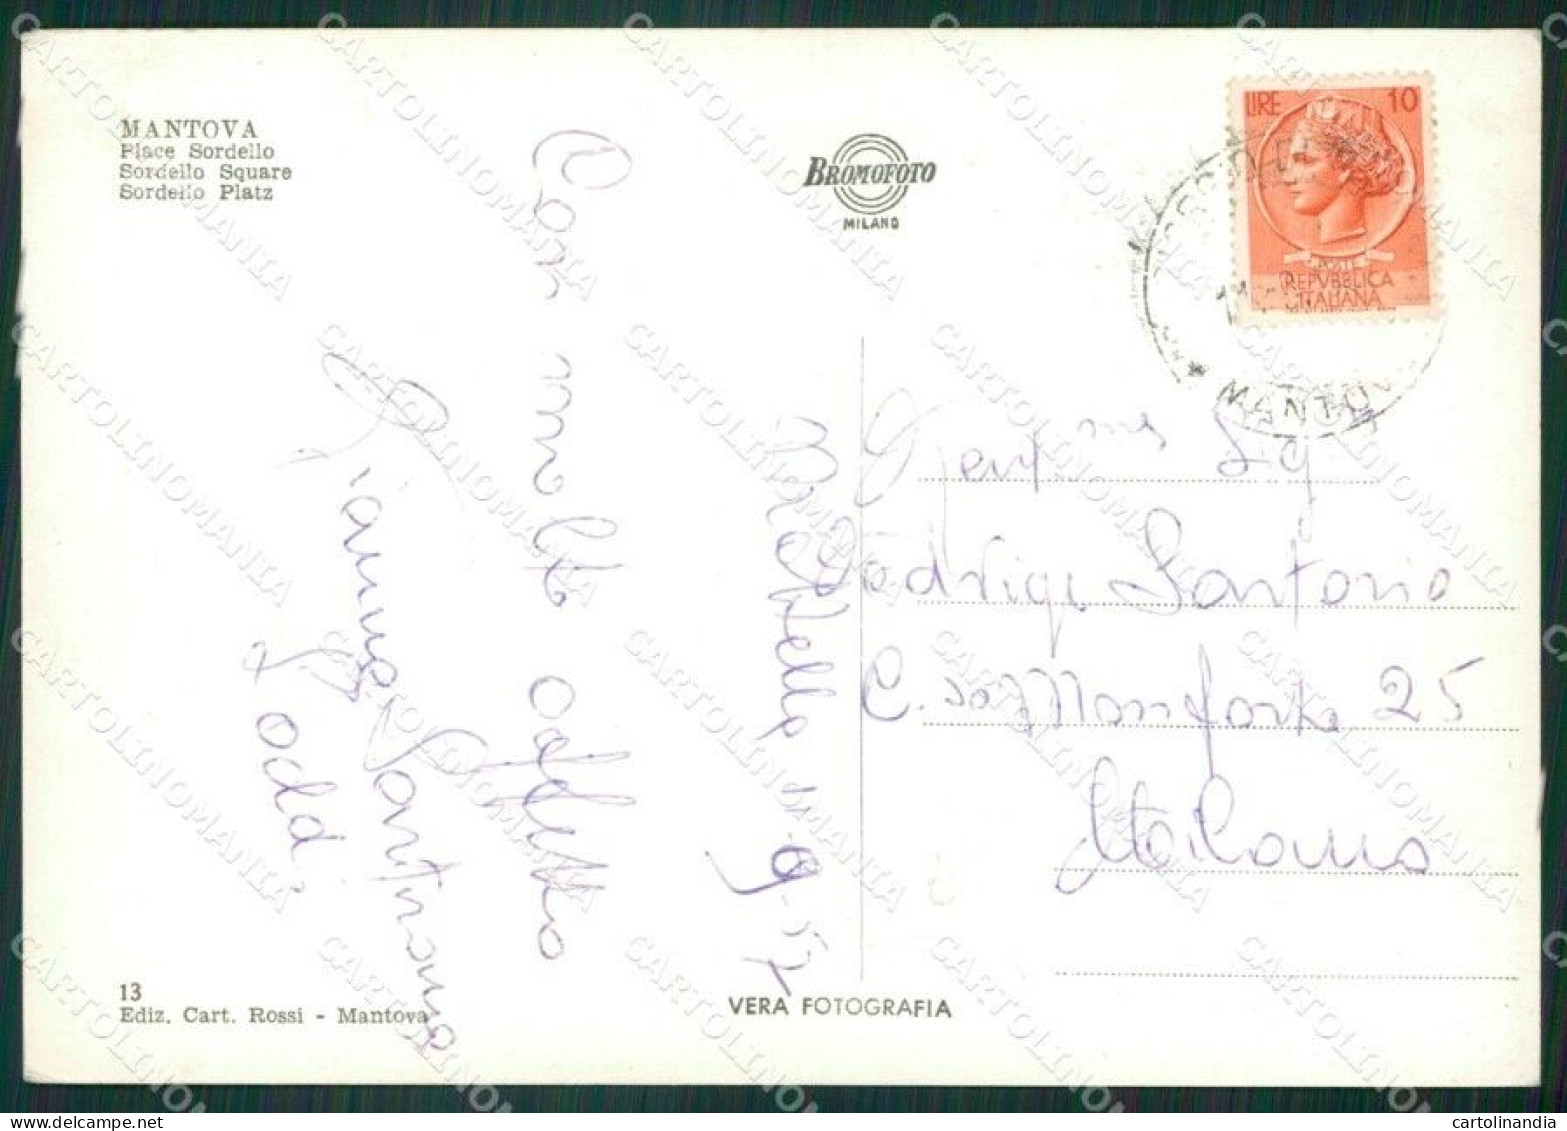 MANTOVA
Place Sordello
Sordello Square
Sordello Platz
BROMOFOTO
MILANO
LIRE 10
POSTE
REPVBBLICA
ITALIANA
MANTOV
Con molto affetto
Lodi
9.57
Gent
Sartorio
C. Monforte 25
Milano
13
Ediz. Cart. Rossi - Mantova
VERA FOTOGRAFIA
CARTOLINOMANIA
cartolinandia